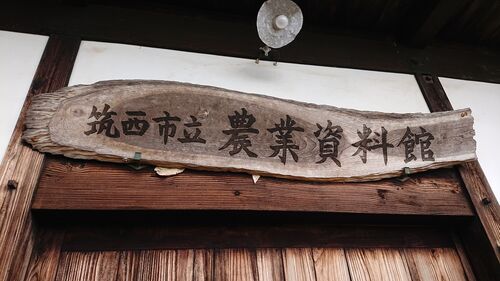 筑西市立 農業資料館